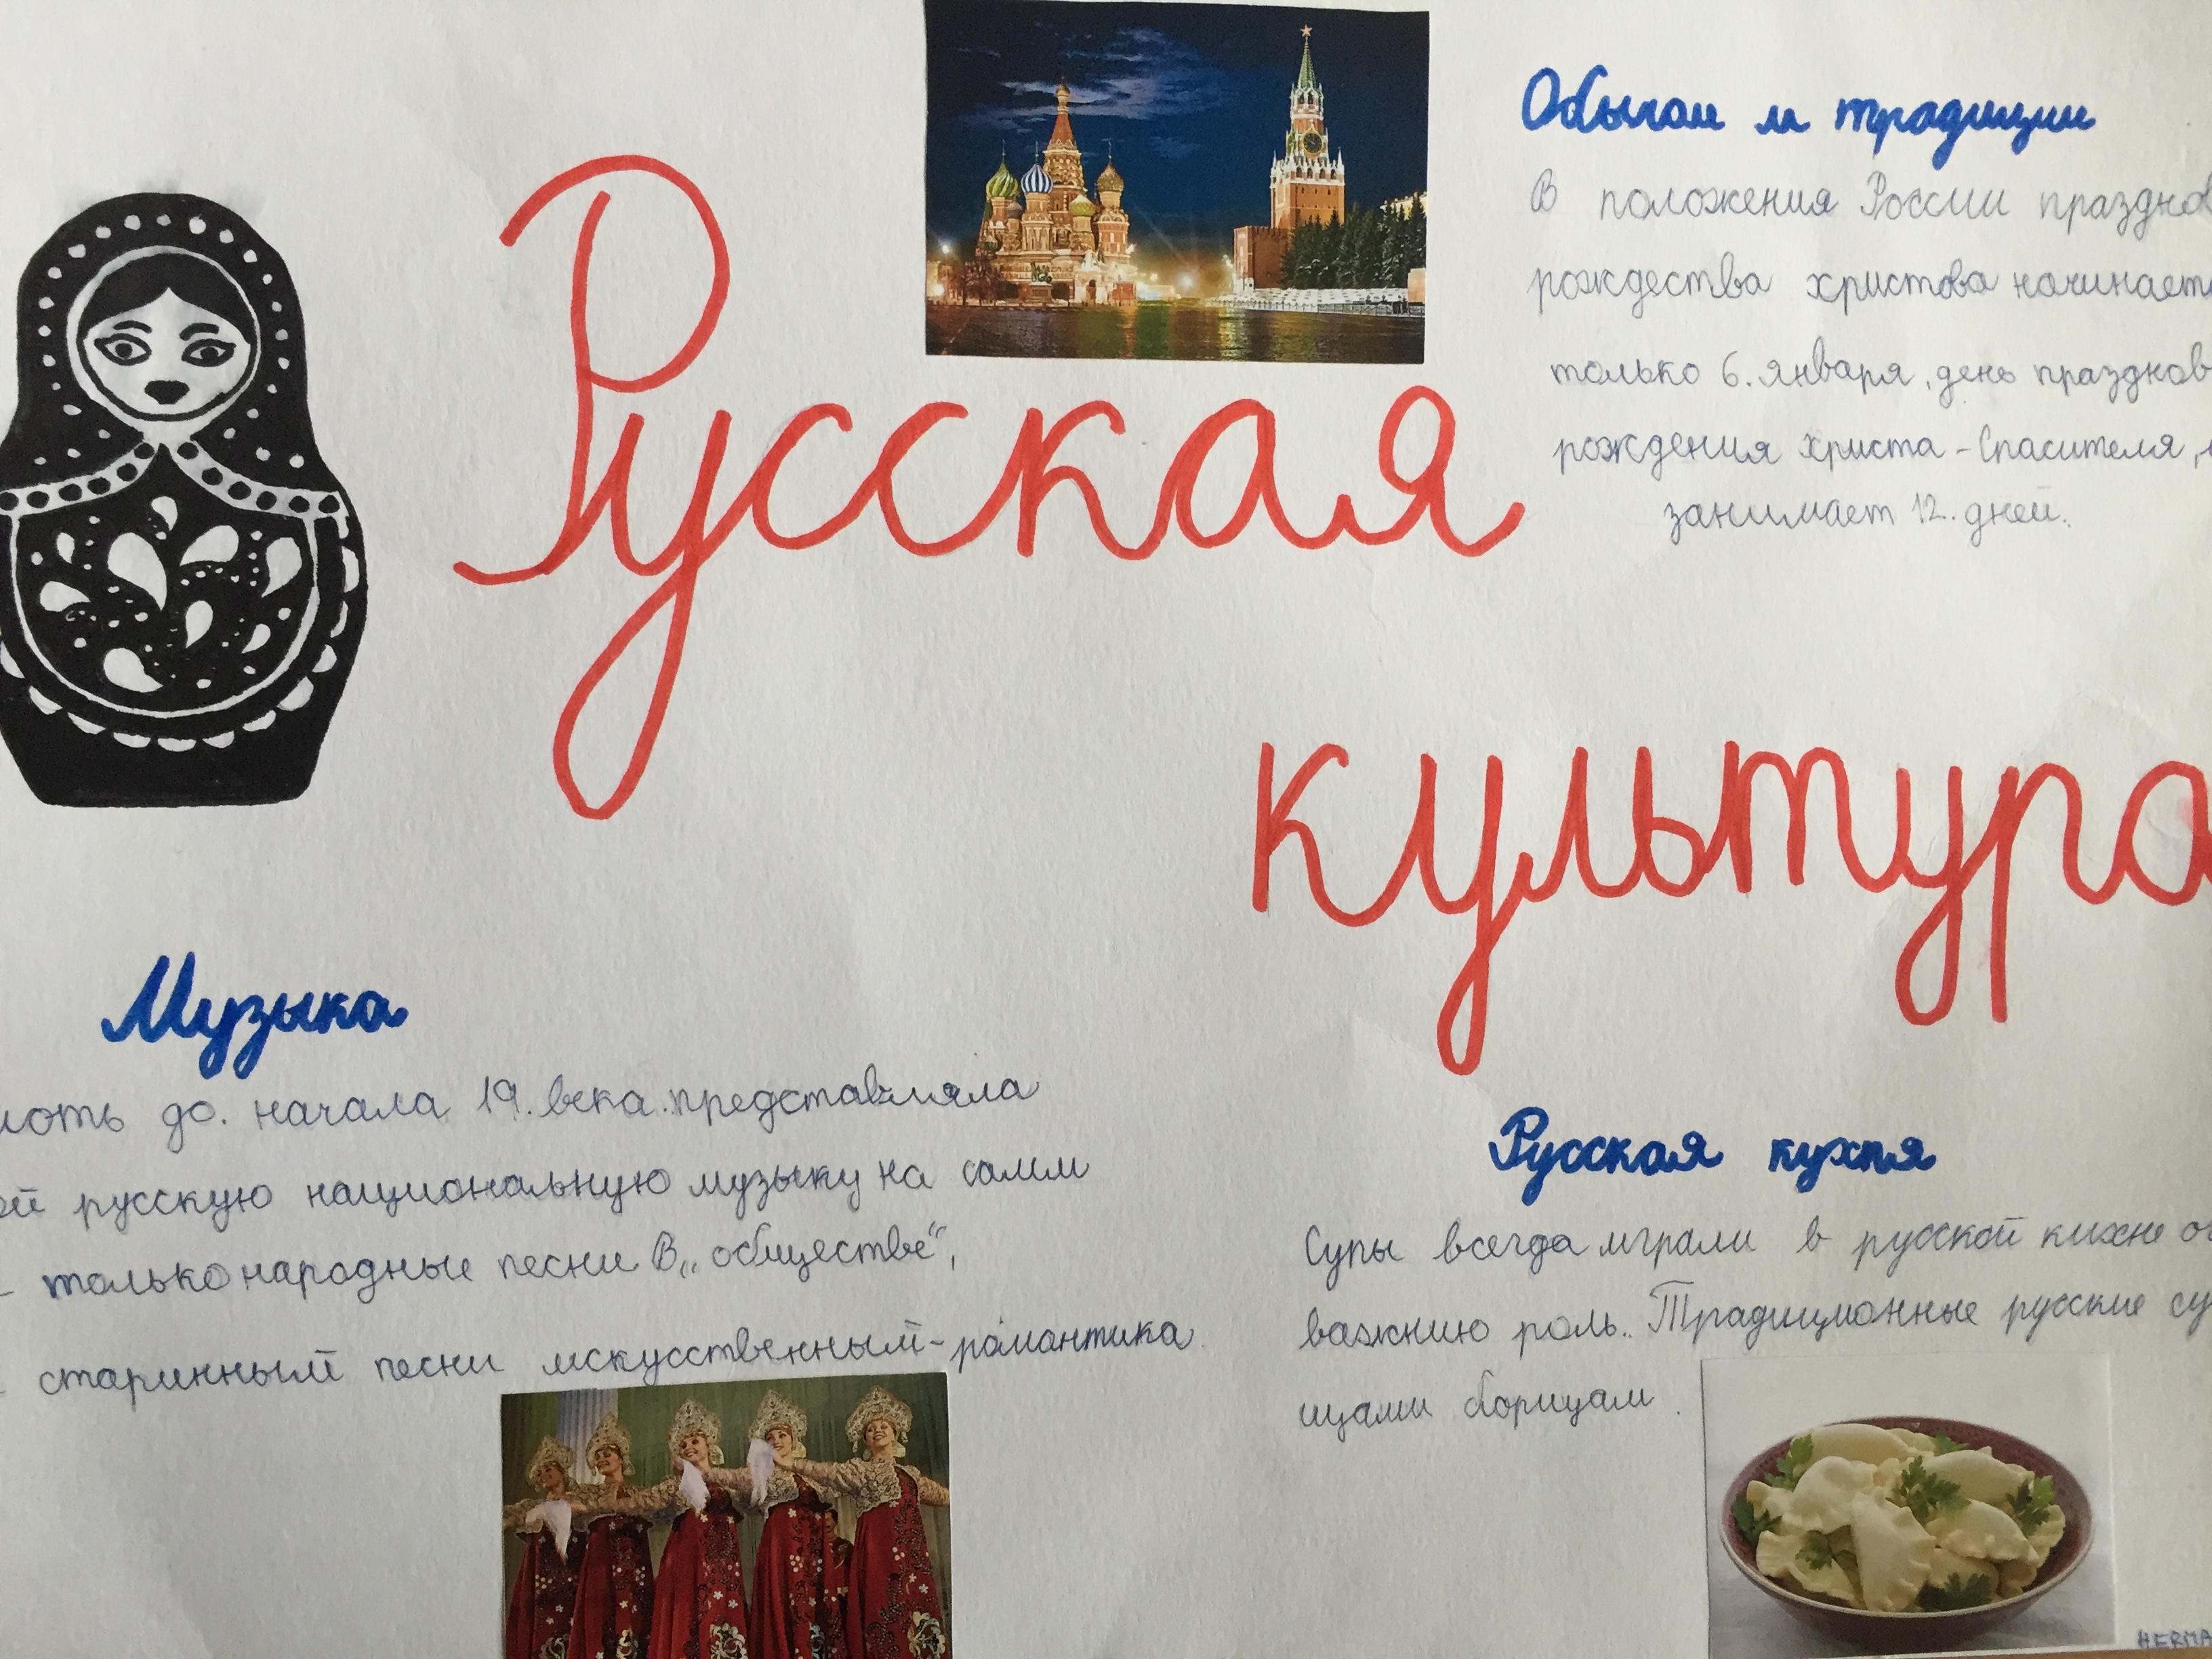 Русская
культура
Обычаи и традиции
В положения России
рождества христова
только 6. января, день
рождения христа - Спасителя,
занимает 12. дней.
Музыка
до. начала 19. века. представляла
русскую национальную музыку на самим
только народные песни В „обществе“,
старинный песни искусственным-романтика
Русская кухня
Супы всегда играли в русской кихне
важнию роль.. Традиционные русские
щами борщам.